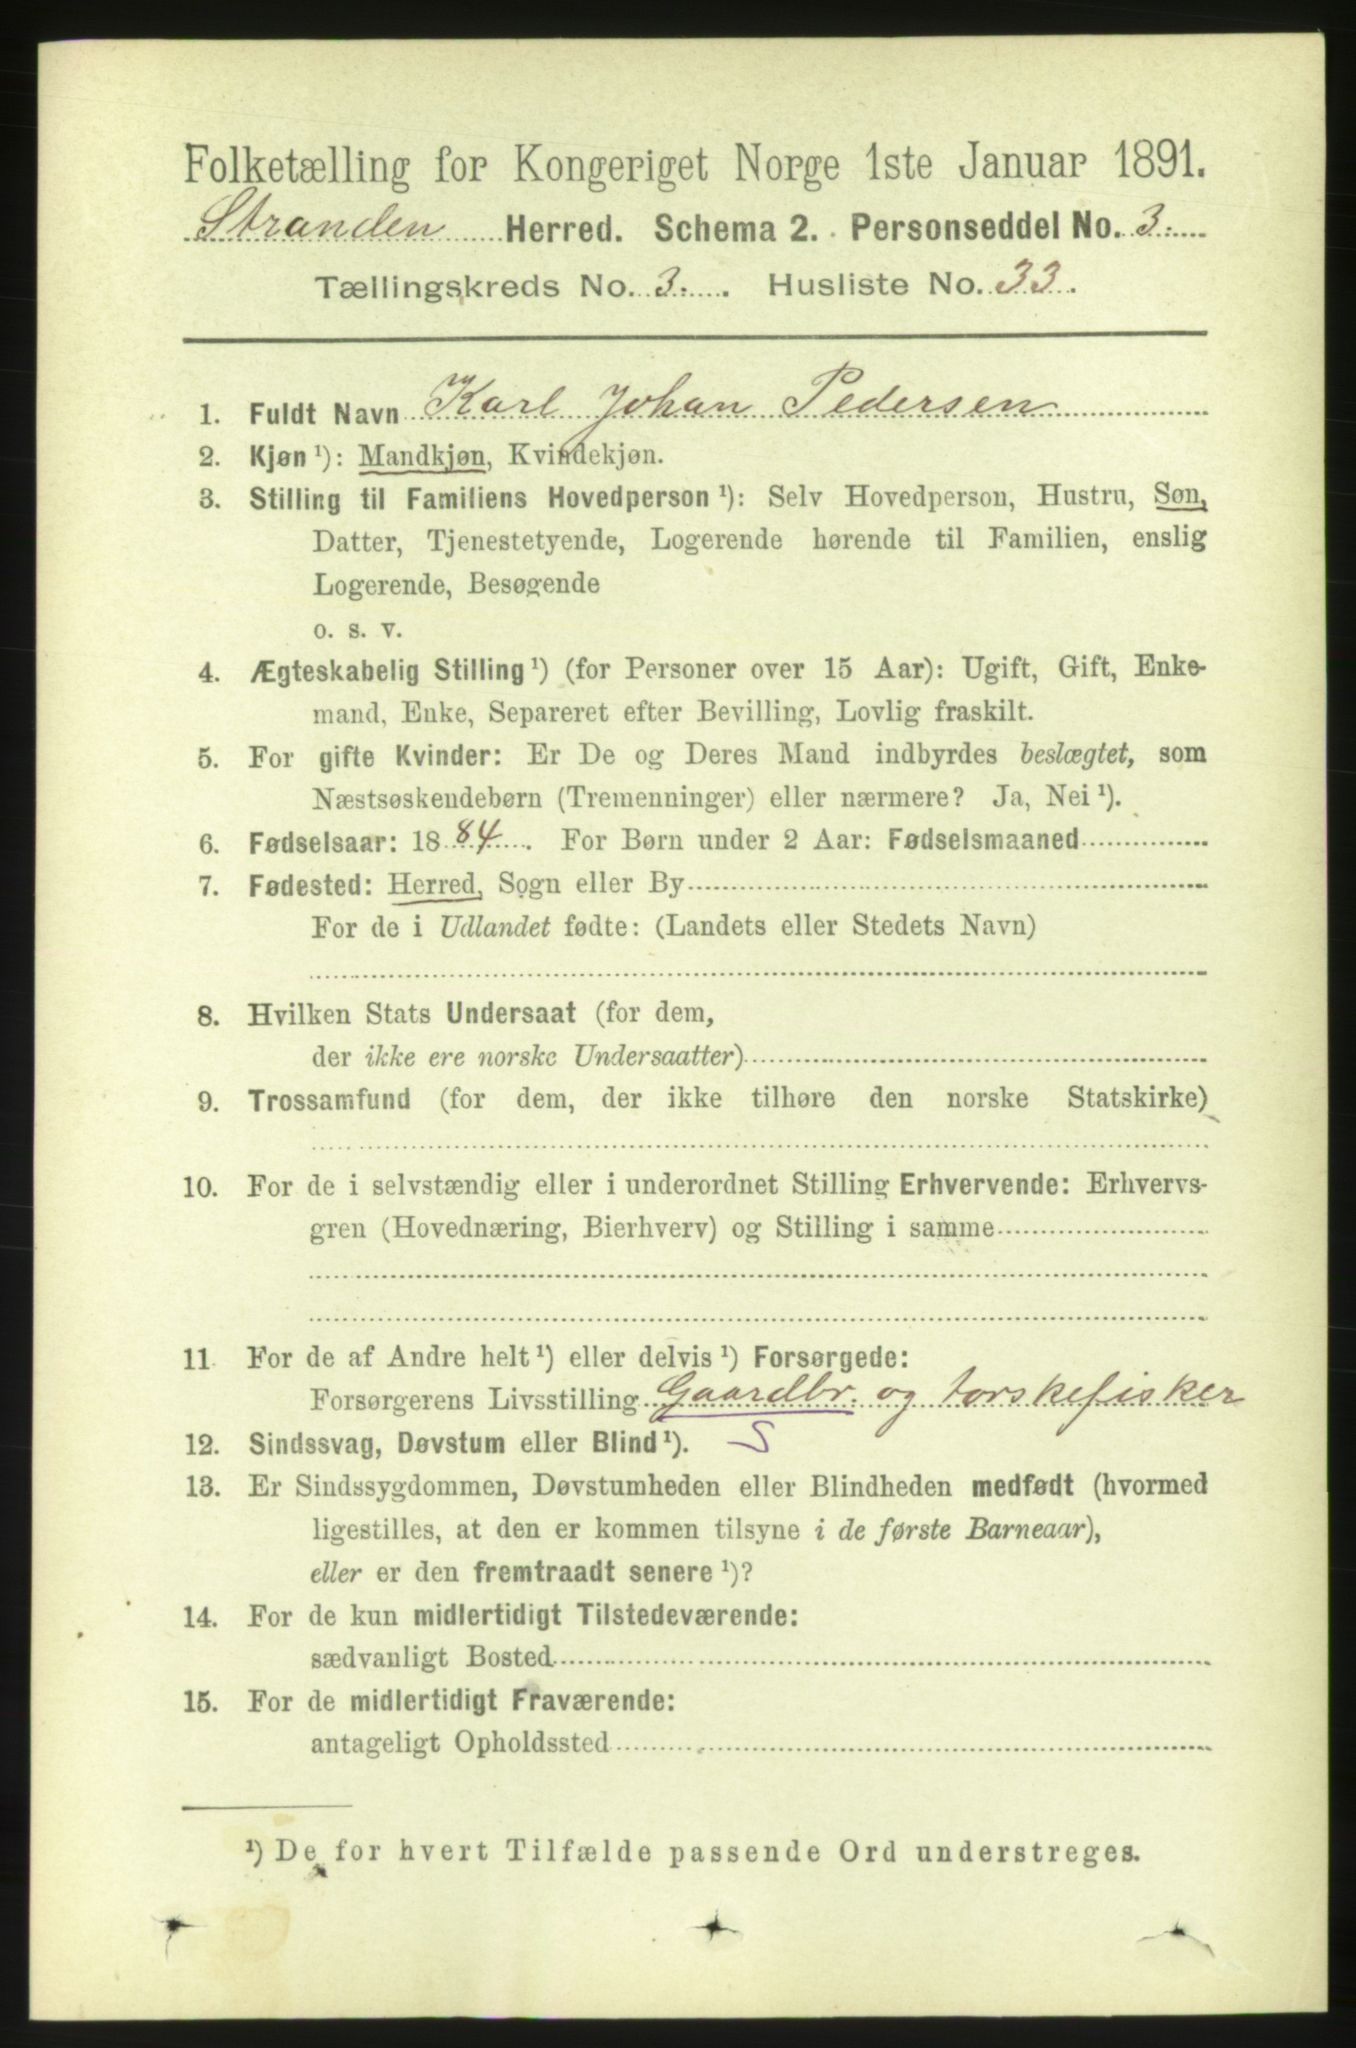 Folketælling for Kongeriget Norge 1ste Januar 1891.
Stranden Herred. Schema 2. Personseddel No. 3.
Tællingskreds No. 3. Husliste No. 33.
1. Fuldt Navn Karl Johan Pedersen
2. Kjøn ¹): Mandkjøn, Kvindekjøn.
3. Stilling til Familiens Hovedperson ¹): Selv Hovedperson, Hustru, Søn,
Datter, Tjenestetyende, Logerende hørende til Familien, enslig
Logerende, Besøgende
o. s. v.
4. Ægteskabelig Stilling ¹) (for Personer over 15 Aar): Ugift, Gift, Enke-
mand, Enke, Separeret efter Bevilling, Lovlig fraskilt.
5. For gifte Kvinder: Er De og Deres Mand indbyrdes beslægtet, som
Næstsøskendebørn (Tremenninger) eller nærmere? Ja, Nei ¹).
6. Fødselsaar: 1884. For Børn under 2 Aar: Fødselsmaaned
7. Fødested: Herred, Sogn eller By
For de i Udlandet fødte: (Landets eller Stedets Navn)
8. Hvilken Stats Undersaat (for dem,
der ikke ere norske Undersaatter)
9. Trossamfund (for dem, der ikke tilhøre den norske Statskirke)
10. For de i selvstændig eller i underordnet Stilling Erhvervende: Erhvervs-
gren (Hovednæring, Bierhverv) og Stilling i samme
11 For de af Andre helt ¹) eller delvis ¹) Forsørgede:
Forsørgerens Livsstilling Gaardbr. og torskefisker
12. Sindssvag, Døvstum eller Blind ¹). S
13. Er Sindssygdommen, Døvstumheden eller Blindheden medfødt (hvormed
ligestilles, at den er kommen tilsyne i de første Barneaar),
eller er den fremtraadt senere ¹)?
14. For de kun midlertidigt Tilstedeværende:
sædvanligt Bosted
15. For de midlertidigt Fraværende:
antageligt Opholdssted
¹) De for hvert Tilfælde passende Ord understreges.